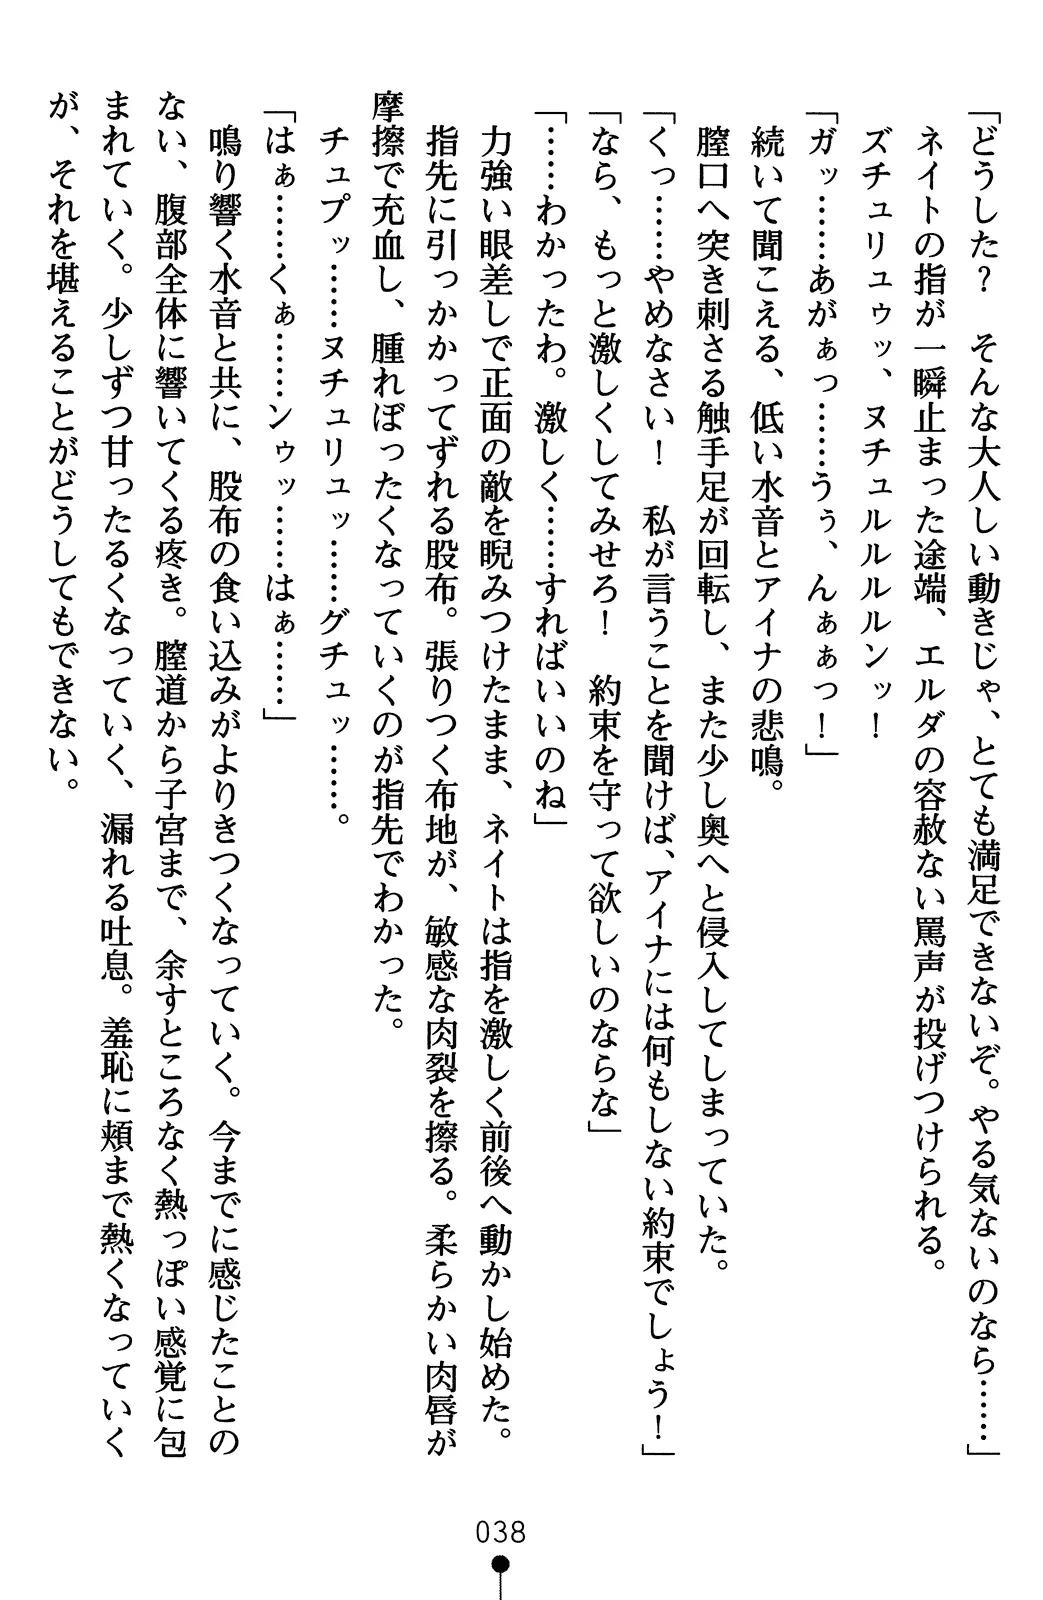 「どうした？　そんな大人しい動きじゃ、とても満足できないぞ。やる気ないのなら……」
ネイトの指が一瞬止まった途端、エルダの容赦ない罵声が投げつけられる。
ズチュリュゥッ、ヌチュルルルルンッ！
「ガッ……あがぁっ……うぅ、んぁぁっ！」
続いて聞こえる、低い水音とアイナの悲鳴。
膣口へ突き刺さる触手足が回転し、また少し奥へと侵入してしまっていた。
「くっ……やめなさい！　私が言うことを聞けば、アイナには何もしない約束でしょう！」
「なら、もっと激しくしてみせろ！　約束を守って欲しいのならな」
「……わかったわ。激しく……すればいいのね」
力強い眼差しで正面の敵を睨みつけたまま、ネイトは指を激しく前後へ動かし始めた。
指先に引っかかってずれる股布。張りつく布地が、敏感な肉裂を擦る。柔らかい肉唇が
摩擦で充血し、腫れぼったくなっていくのが指先でわかった。
チュプッ……ヌチュリュッ……グチュッ……。
「はぁ……くぁ……ンゥッ……はぁ……」
鳴り響く水音と共に、股布の食い込みがよりきつくなっていく。今までに感じたことの
ない、腹部全体に響いてくる疼き。膣道から子宮まで、余すところなく熱っぽい感覚に包
まれていく。少しずつ甘ったるくなっていく、漏れる吐息。羞恥に頬まで熱くなっていく
が、それを堪えることがどうしてもできない。
038